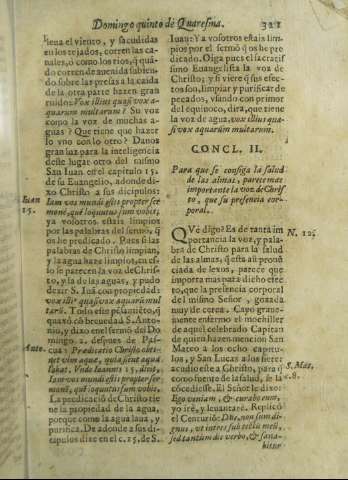 Domingo quinto de Quaresma. 321
siena el viento, y sacudidas
en los tejados, corren las cana-
les, ò como los rios, q̃ quã-
do corren de auenida subien-
do sobre las presas a la caida
de la otra parte hazen gran
ruido: Vox illius quasi vox a-
quarum multarum? Su voz
como la voz de muchas a-
guas? Que tiene que hazer
lo vno con lo otro? Danos
gran luz para la inteligencia
deste lugar otro del mismo
San Iuan en el capitulo 15.
de su Euangelio, donde di-
xo Christo a sus dicipulos:
Iam vos mundi estis propter ser-
monẽ, quẽ loquutus sum vobis;
ya vosotros estais limpios
por las palabras del sermõ, q̃
os he predicado. Pues si las
palabras de Christo limpian,
y la agua haze limpios, en es-
so se parecen la voz de Chris-
to, y la de las aguas, y pudo
dezir S. Iuã con propiedad:
vox illi⁹ quasi vox aquarũ mul-
tarũ. Todo este pẽsamiẽto, q̃
quaxò cõ breuedad S. Anto-
nio, y dixo en el sermõ del Do
mingo 2. despues de Pas-
cua: Predicatio Christi habet
vim aquæ, quia sicut aqua
labat. Vnde Ioannis 15. dicit,
Iam vos mundi estis propter ser-
monẽ, quẽ loquutus sum vobis.
La predicaciõ de Christo tie-
ne la propiedad de la agua,
porque como la agua laua, y
purifica. De adonde a sus di-
cipulos dize en el c. 15. de S.
Iuan
15.
Anto.
Iuan: Ya vosotros estais lim-
pios por el sermõ q̃ os he pre
dicado. Oiga pues el sacratis-
simo Euangelista la voz de
Christo; y si viere q̃ sus efec-
tos son, limpiar y purificar de
pecados, vsando con primor
del equinoco, dira, que tiene
la voz de agua, vox illius qua-
si vox aquarum multarum.
CONCL. II.
Para que se consiga la salud
de las almas, parece mas
importante la voz de Chris-
to, que su presencia cor-
poral.
QVe digo? Es de tanta im
portancia la voz, y pala-
bra de Christo para la salud
de las almas, q̃ esta assi pronũ
ciada de lexos, parece que
importa mas para dicho efec-
to, que la presencia corporal
del mismo Señor, gozada
muy de cerca. Cayo graue-
mente enfermo el mochiller
de aquel celebrado Capitan
de quien hazen mencion San
Mateo a los ocho capitu-
los, y San Lucas a los siete:
acudio este a Christo, para q̃
como fuente de la salud, se la
cõcediesse. El Señor le dixo:
Ego veniam, & curabo eum,
yo irè, y leuantarè. Replicò
el Centuriõ: Dñe, non sum di-
gnus, vt intres sub tectũ meũ,
sed tantùm dic verbo, & sana-
bitur
N. 12.
S. Mat.
c. 8.